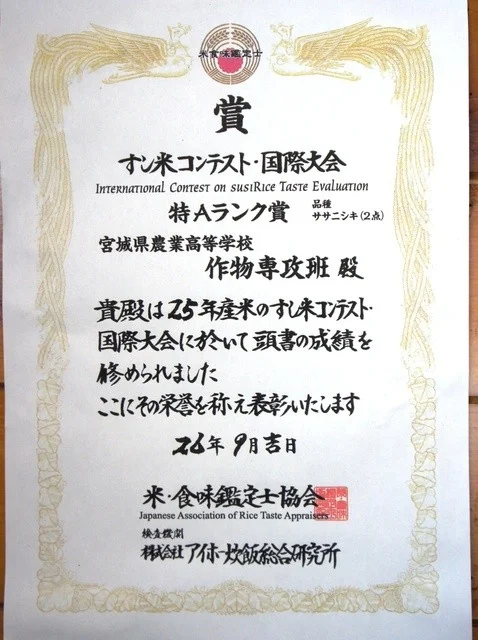 米食味鑑定士
賞
すし米コンテスト・国際大会
International Contest on susiRice Taste Evaluation
特Aランク賞 品種
ササニシキ(2点)
宮城県農業高等学校
作物専攻班 殿
貴殿は25年産米のすし米コンテスト・
国際大会に於いて頭書の成績を
修められました
ここにその栄誉を称え表彰いたします
26年9月吉日
米・食味鑑定士協会
Japanese Association of Rice Taste Appraisers
検査機関
株式会社アイホー炊飯総合研究所